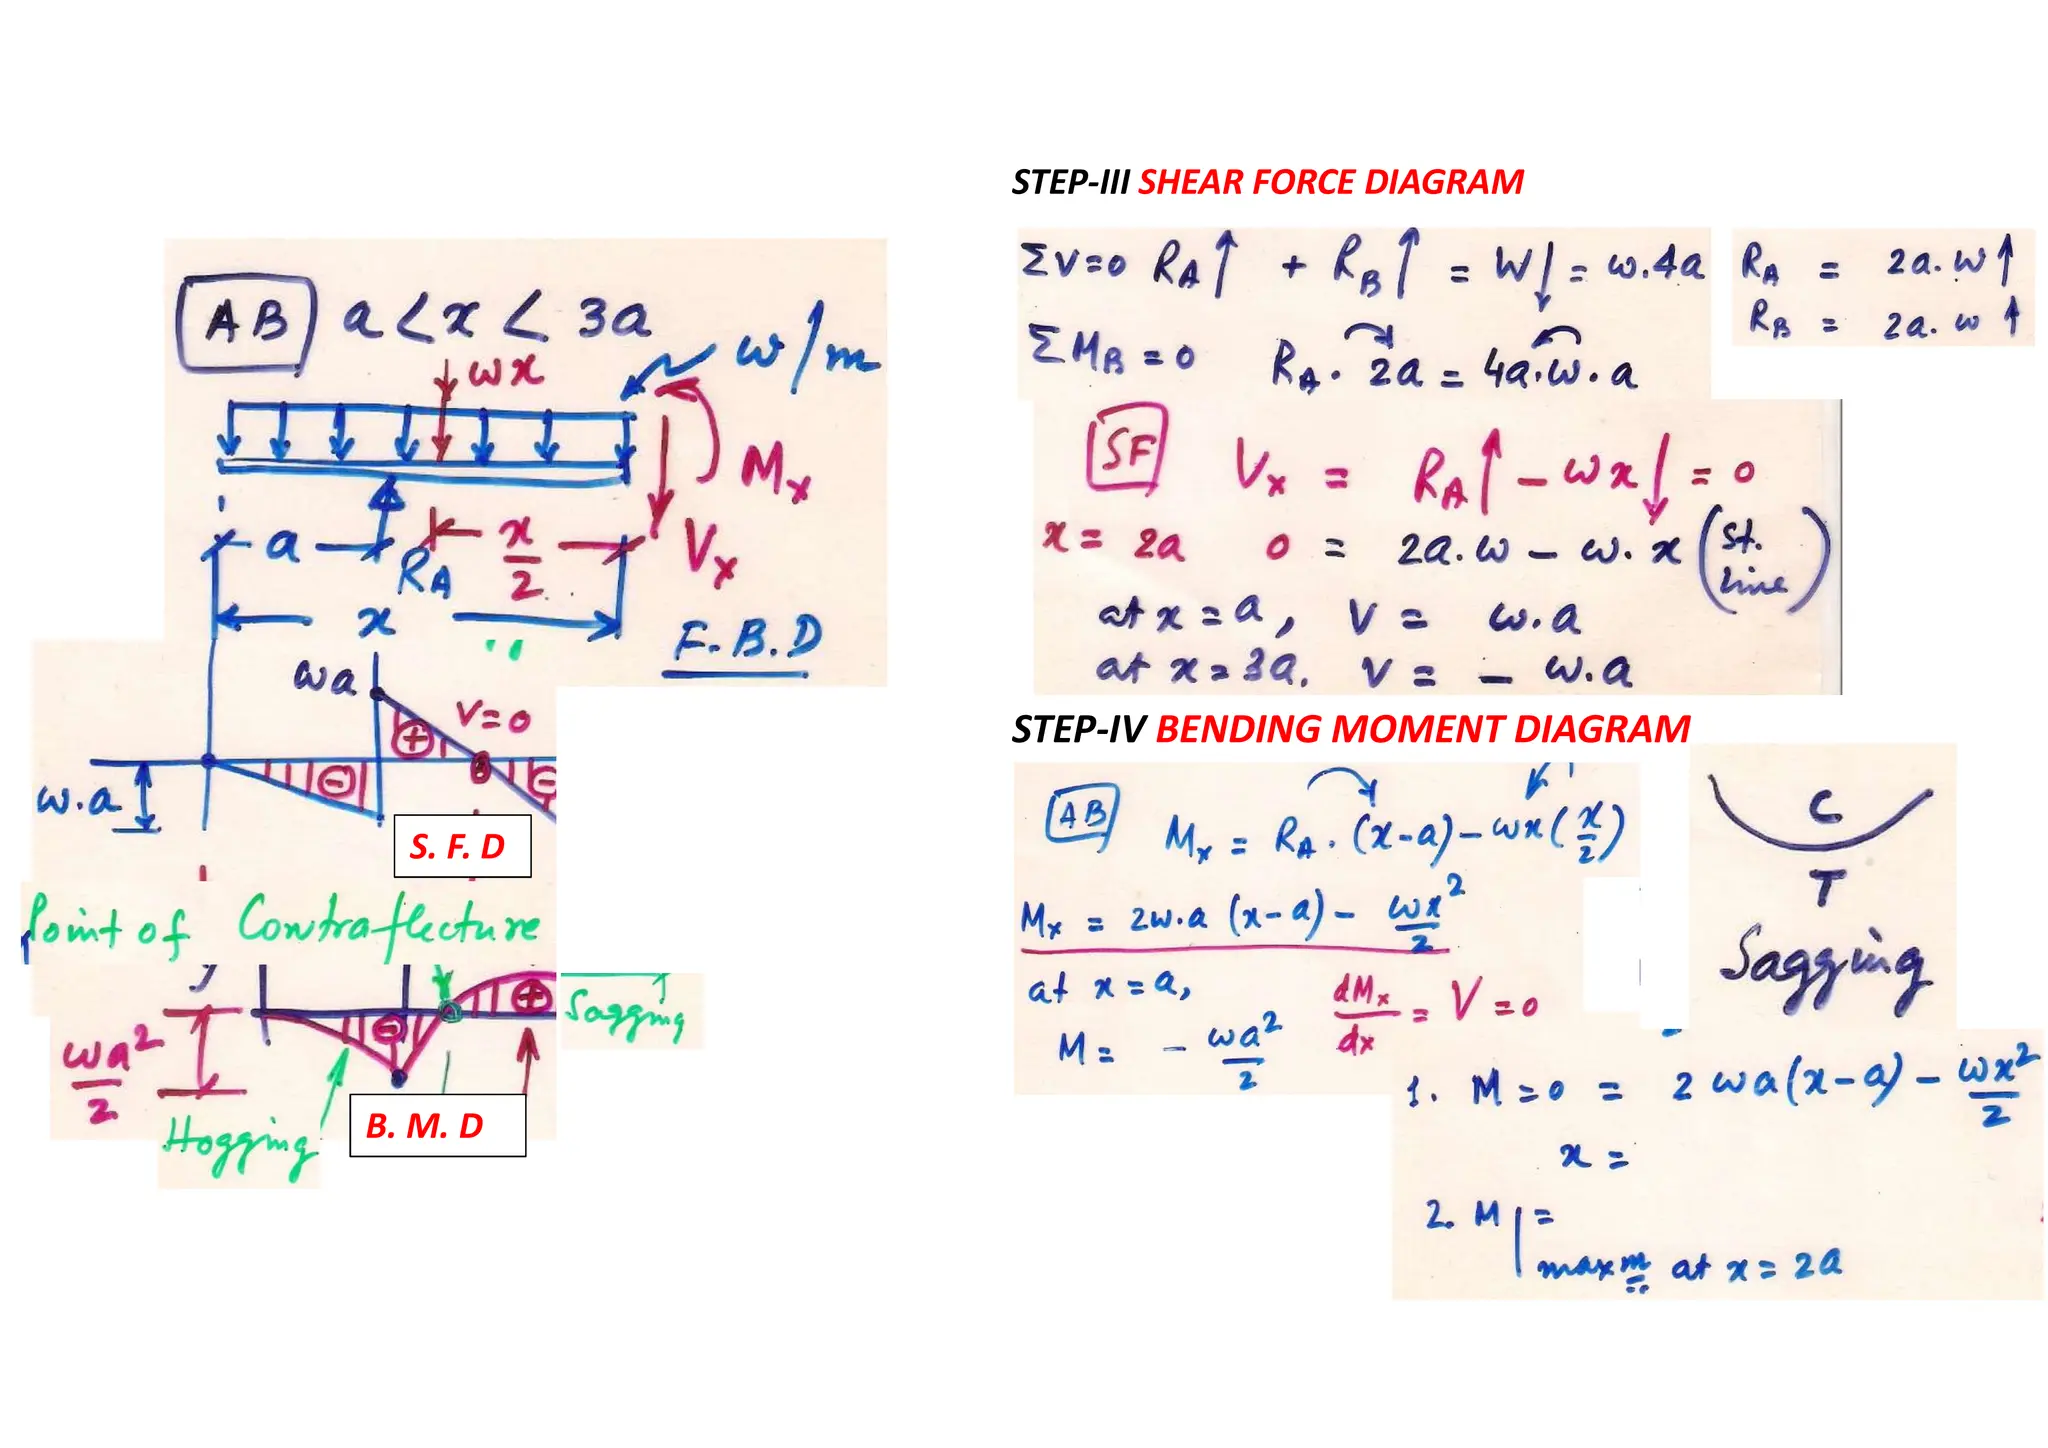 AB a < x < 3a
wx
w/m
Mx
a
RA
x/2
Vx
x
F.B.D
wa
V=0
+
-
-
w.a
S. F. D
Point of Contraflecture
+
-
Sagging
wa²/2
Hogging
B. M. D
STEP-III SHEAR FORCE DIAGRAM
ΣV=0 RA↑ + RB↑ = W↓ = w.4a
RA = 2a.w↑
RB = 2a.w↑
ΣMB=0 RA.2a = 4a.w.a
SF Vx = RA↑ - wx↓ = 0
x = 2a 0 = 2a.w - w.x (st. line)
at x = a, V = w.a
at x = 3a. V = - w.a
STEP-IV BENDING MOMENT DIAGRAM
AB Mx = RA.(x-a) - wx(x/2)
Mx = 2w.a (x-a) - wx²/2
at x = a,
M = - wa²/2
dMx/dx = V = 0
C
T
Sagging
1. M=0 = 2wa(x-a) - wx²/2
x =
2. M| =
maxm at x = 2a